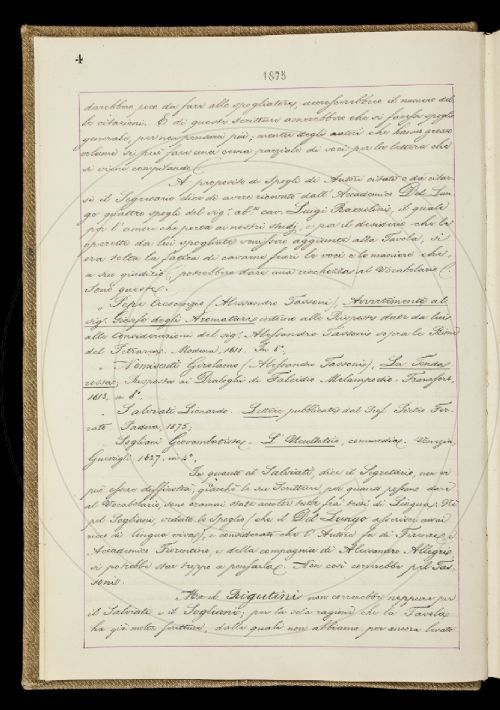 4
1875
darebbero poco da fare allo spogliatore, accrescerebbero il numero del-
le citazioni. E di queste scritture amerebbero che si facesse spoglio
generale, per non pensarci più; mentre degli autori che hanno grosso
volume si può fare una cerna parziale di voci per la lettera che
si viene compilando.
A proposito di Spogli di Autori citati o da citar-
si il Segretario dice di avere ricevuto dall'Accademico Del Lun-
go quattro spogli del sig. ab. cav. Luigi Razzolini, il quale
per l'amore che porta ai nostri studj, e per il desiderio che le
operette da lui spogliate venissero aggiunte alla Tavola, si
era tolta la fatica di cavarne fuori le voci e le maniere che,
a suo giudizio, potrebbero dare una ricchezza al Vocabolario.
Sono queste:
Pepe Crescenzio (Alessandro Tassoni), Avvertimenti al
sig. Giosefo degli Aromatari intorno alle Risposte date da lui
alle Considerazioni del sig. Alessandro Tassoni sopra le Rime
del Petrarca. Modena, 1611. In 8°.
Nomisenti Girolamo (Alessandro Tassoni), La Tenda
rossa, Risposta ai Dialoghi di Falcidio Melampodio. Francfort,
1613, in 8°.
Salviati Lionardo. Lettere pubblicate dal Prof. Pietro Fer-
rato. Padova, 1875.
Sogliani Giovambatista. L'Uccellatoio, commedia. Venezia,
Guerigli, 1627, in 4°.
In quanto al Salviati, dice il Segretario, non vi
può essere difficoltà; giacchè le sue Scritture per quanto possono dare
al Vocabolario, sono oramai state accettate tutte fra i testi di Lingua. Pel
pel Sogliani, veduto lo Spoglio, che il Del Lungo asserisce assai
ricco di lingua viva, e considerato che l'Autore fu di Firenze e
Accademico Fiorentino, e della compagnia di Alessandro Allegri,
si potrebbe star troppo a pensarla. Non così correrebbe pel Tas-
soni.
Ma il Rigutini non correrebbe neppure per
il Salviati e il Sogliani; per la sola ragione che la Tavola
ha già molte scritture, dalle quali non abbiamo per ancora levato